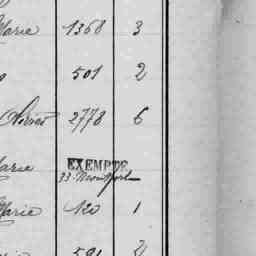 Marie 1368 3
501 2
2778 6
Marie EXEMPTE
33
Marie 120 1
591 2